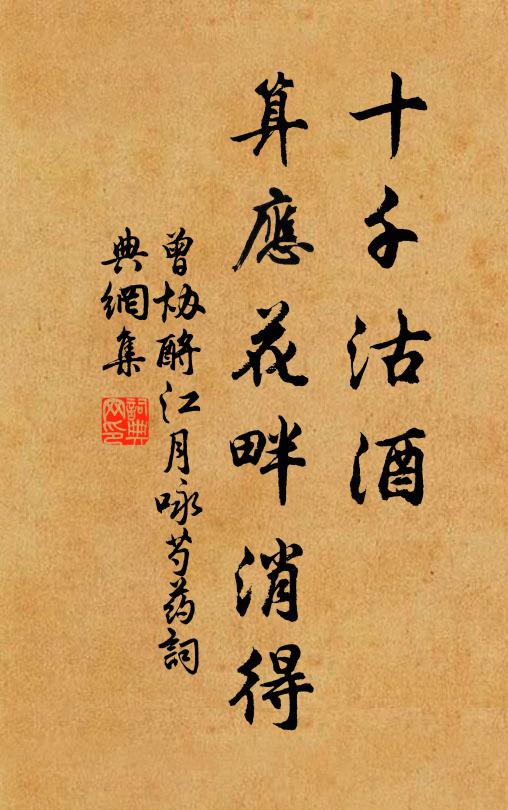 十千沽酒
算應花畔消得
曾协酹江月咏芍药詞
典網集
詞典网印